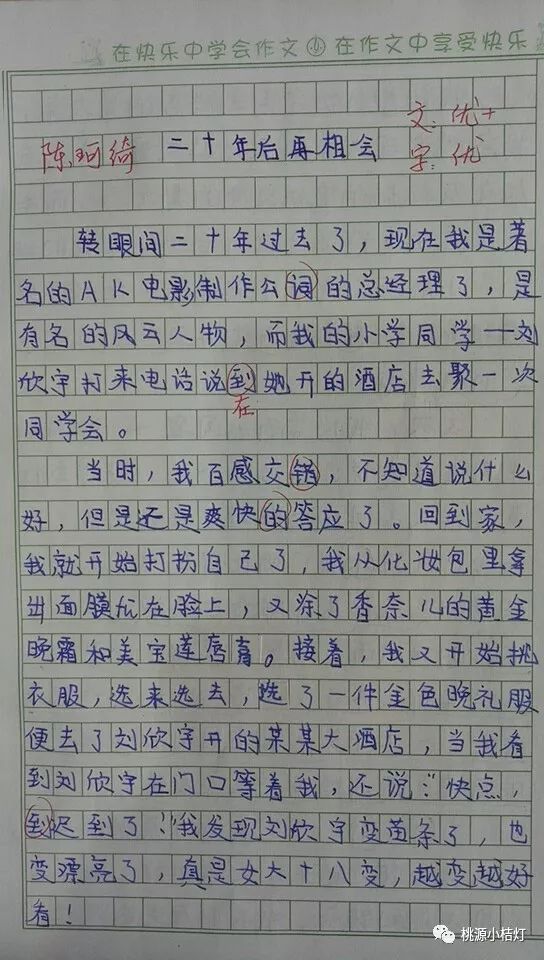 在快乐中学会作文 在作文中享受快乐
文:优+
陈珂绮 二十年后再相会 字:优
转眼间二十年过去了,现在我是著
名的AK电影制作公词的总经理了,是
有名的风云人物,而我的小学同学一刘
欣宇打来电话说到她开的酒店去聚一次
在
同学会。
当时,我百感交错,不知道说什么
好,但是还是爽快的答应了。回到家,
我就开始打扮自己了,我从化妆包里拿
出面膜 在脸上,又涂了香奈儿的黄金
晚霜和美宝莲唇膏。接着,我又开始挑
衣服,选来选去,选了一件金色晚礼服
便去了刘欣宇开的某某大酒店,当我看
到刘欣宇在门口等着我,还说:“快点,
到迟到了!”我发现刘欣宇变苗条了,也
变漂亮了,真是女大十八变,越变越好
看!
桃源小桔灯